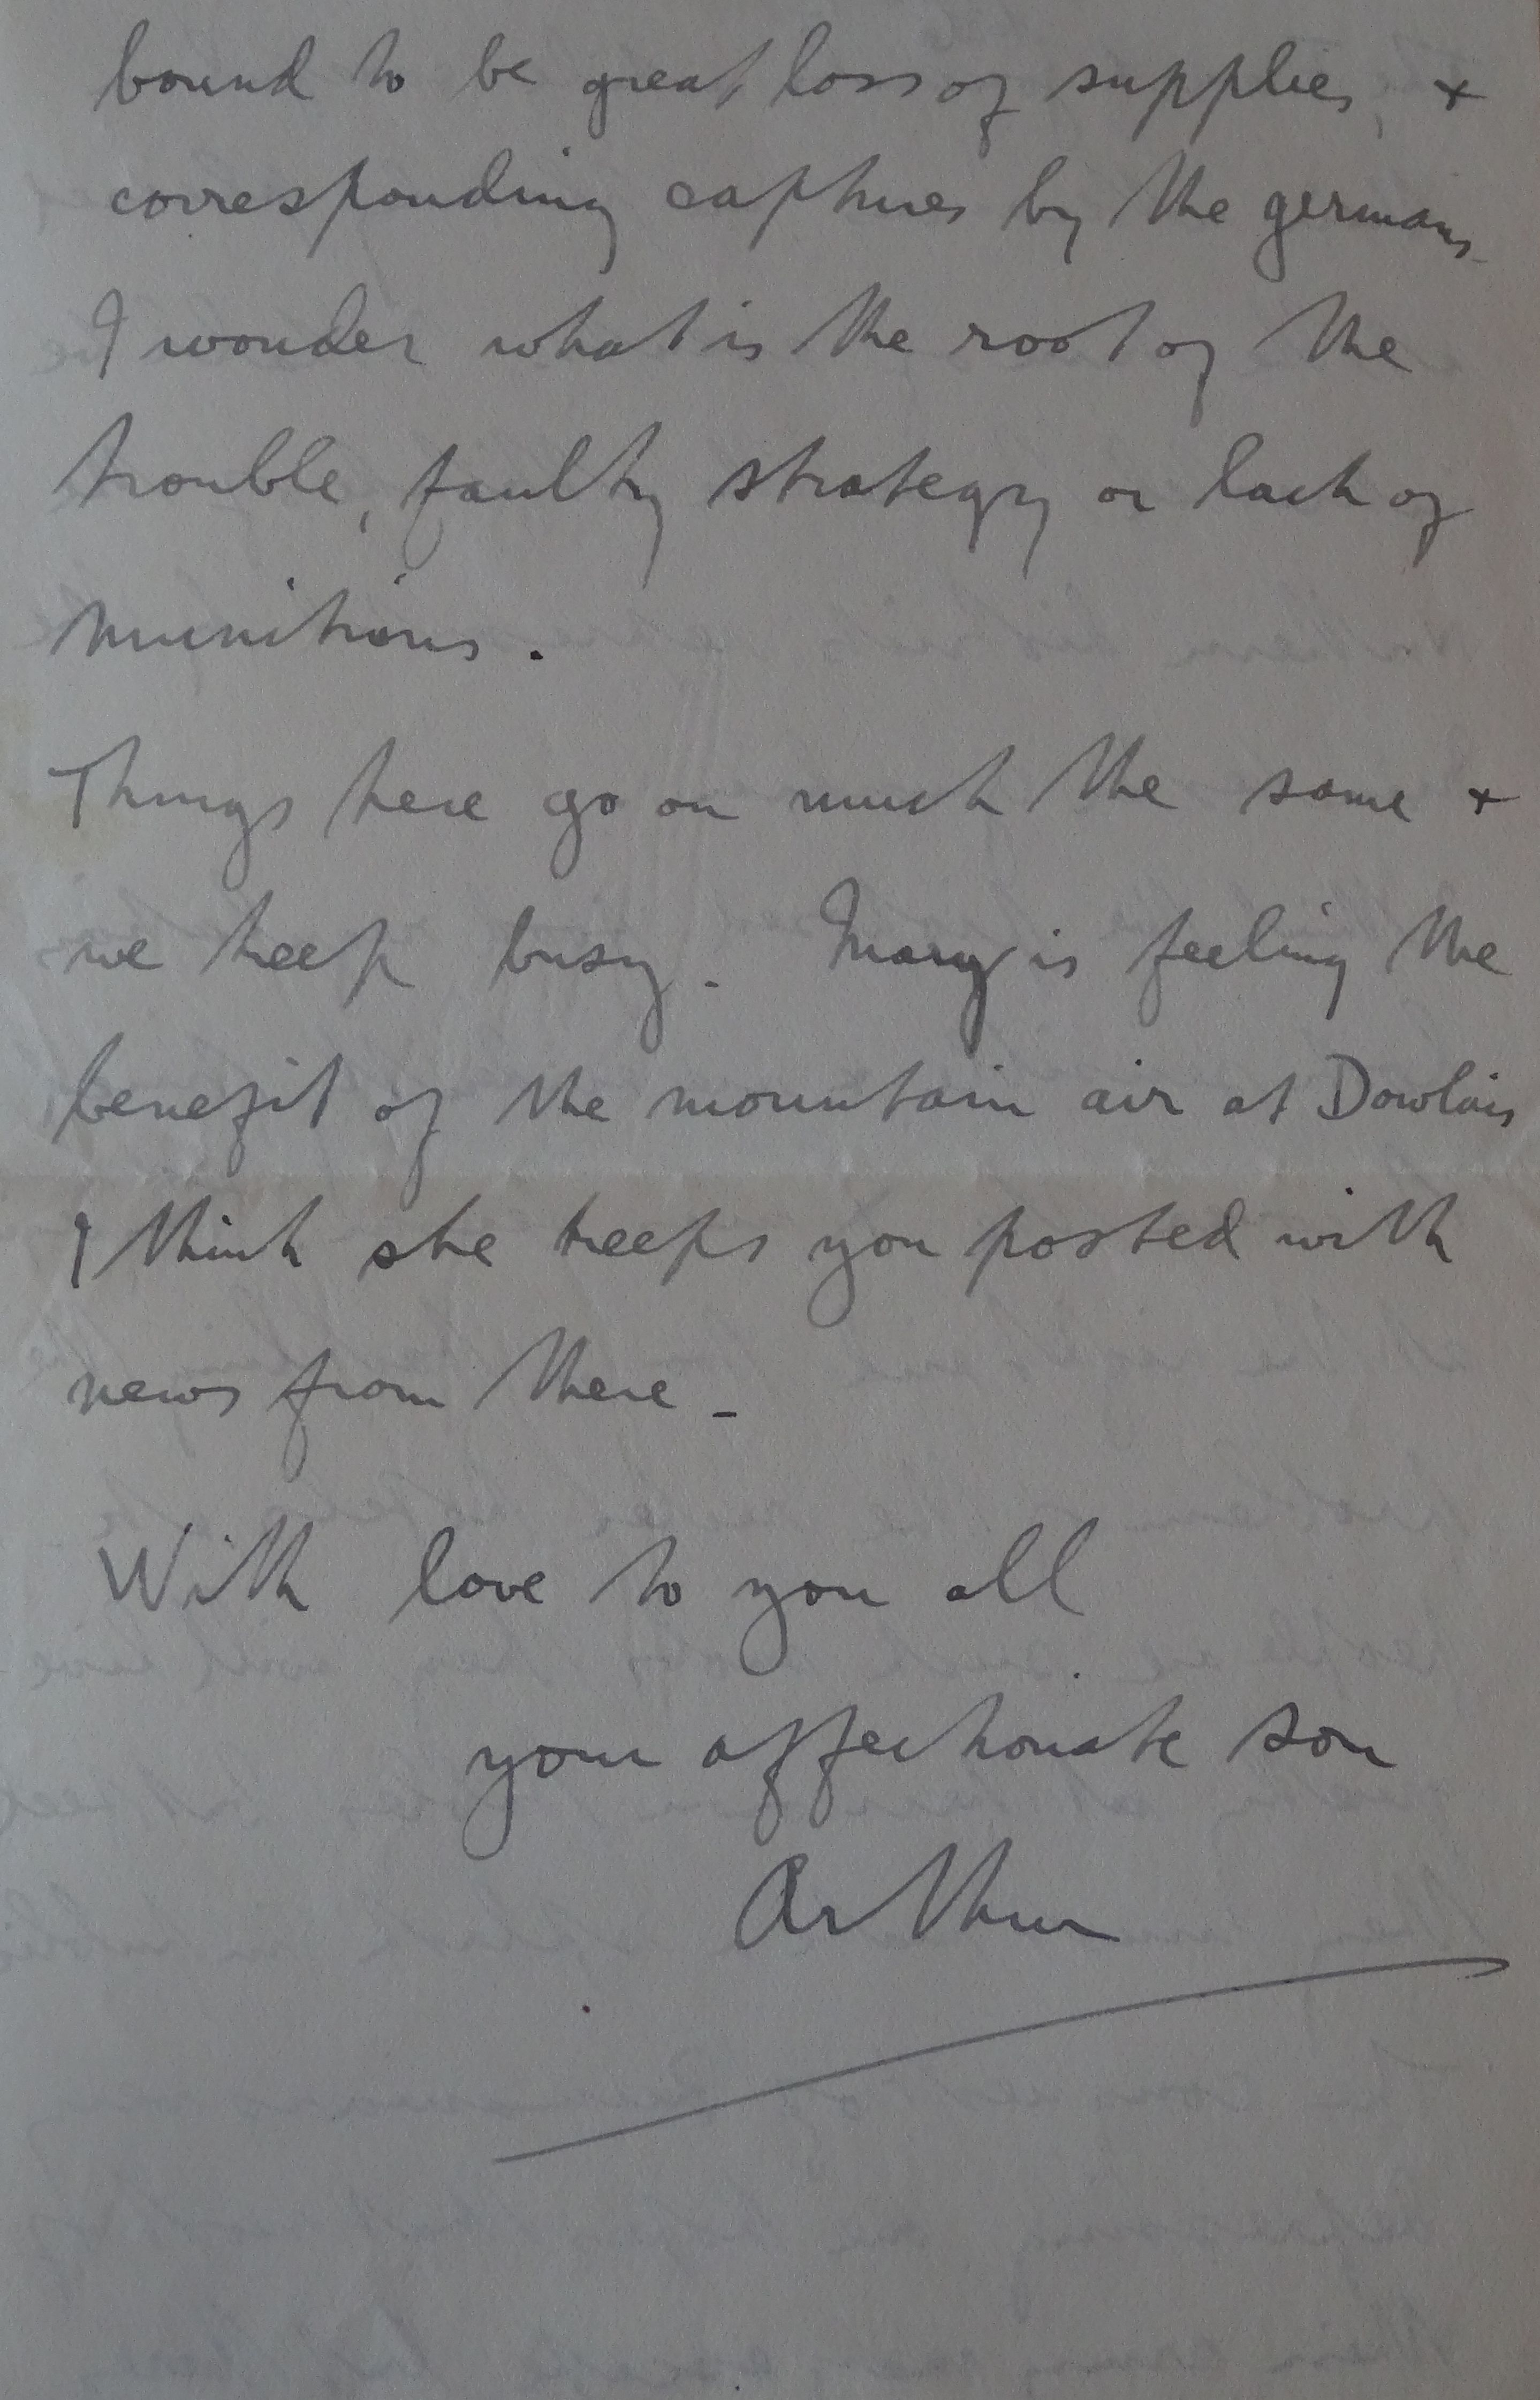 bound to be great loss of supplies, +
corresponding captures by the germans.
I wonder what is the root of the
trouble, faulty strategy or lack of
munitions.
Things here go on much the same +
we keep busy. Mary is feeling the
benefit of the mountain air at Dowlais
I think she keeps you posted with
news from there -
With love to you all
your affectionate son
Arthur